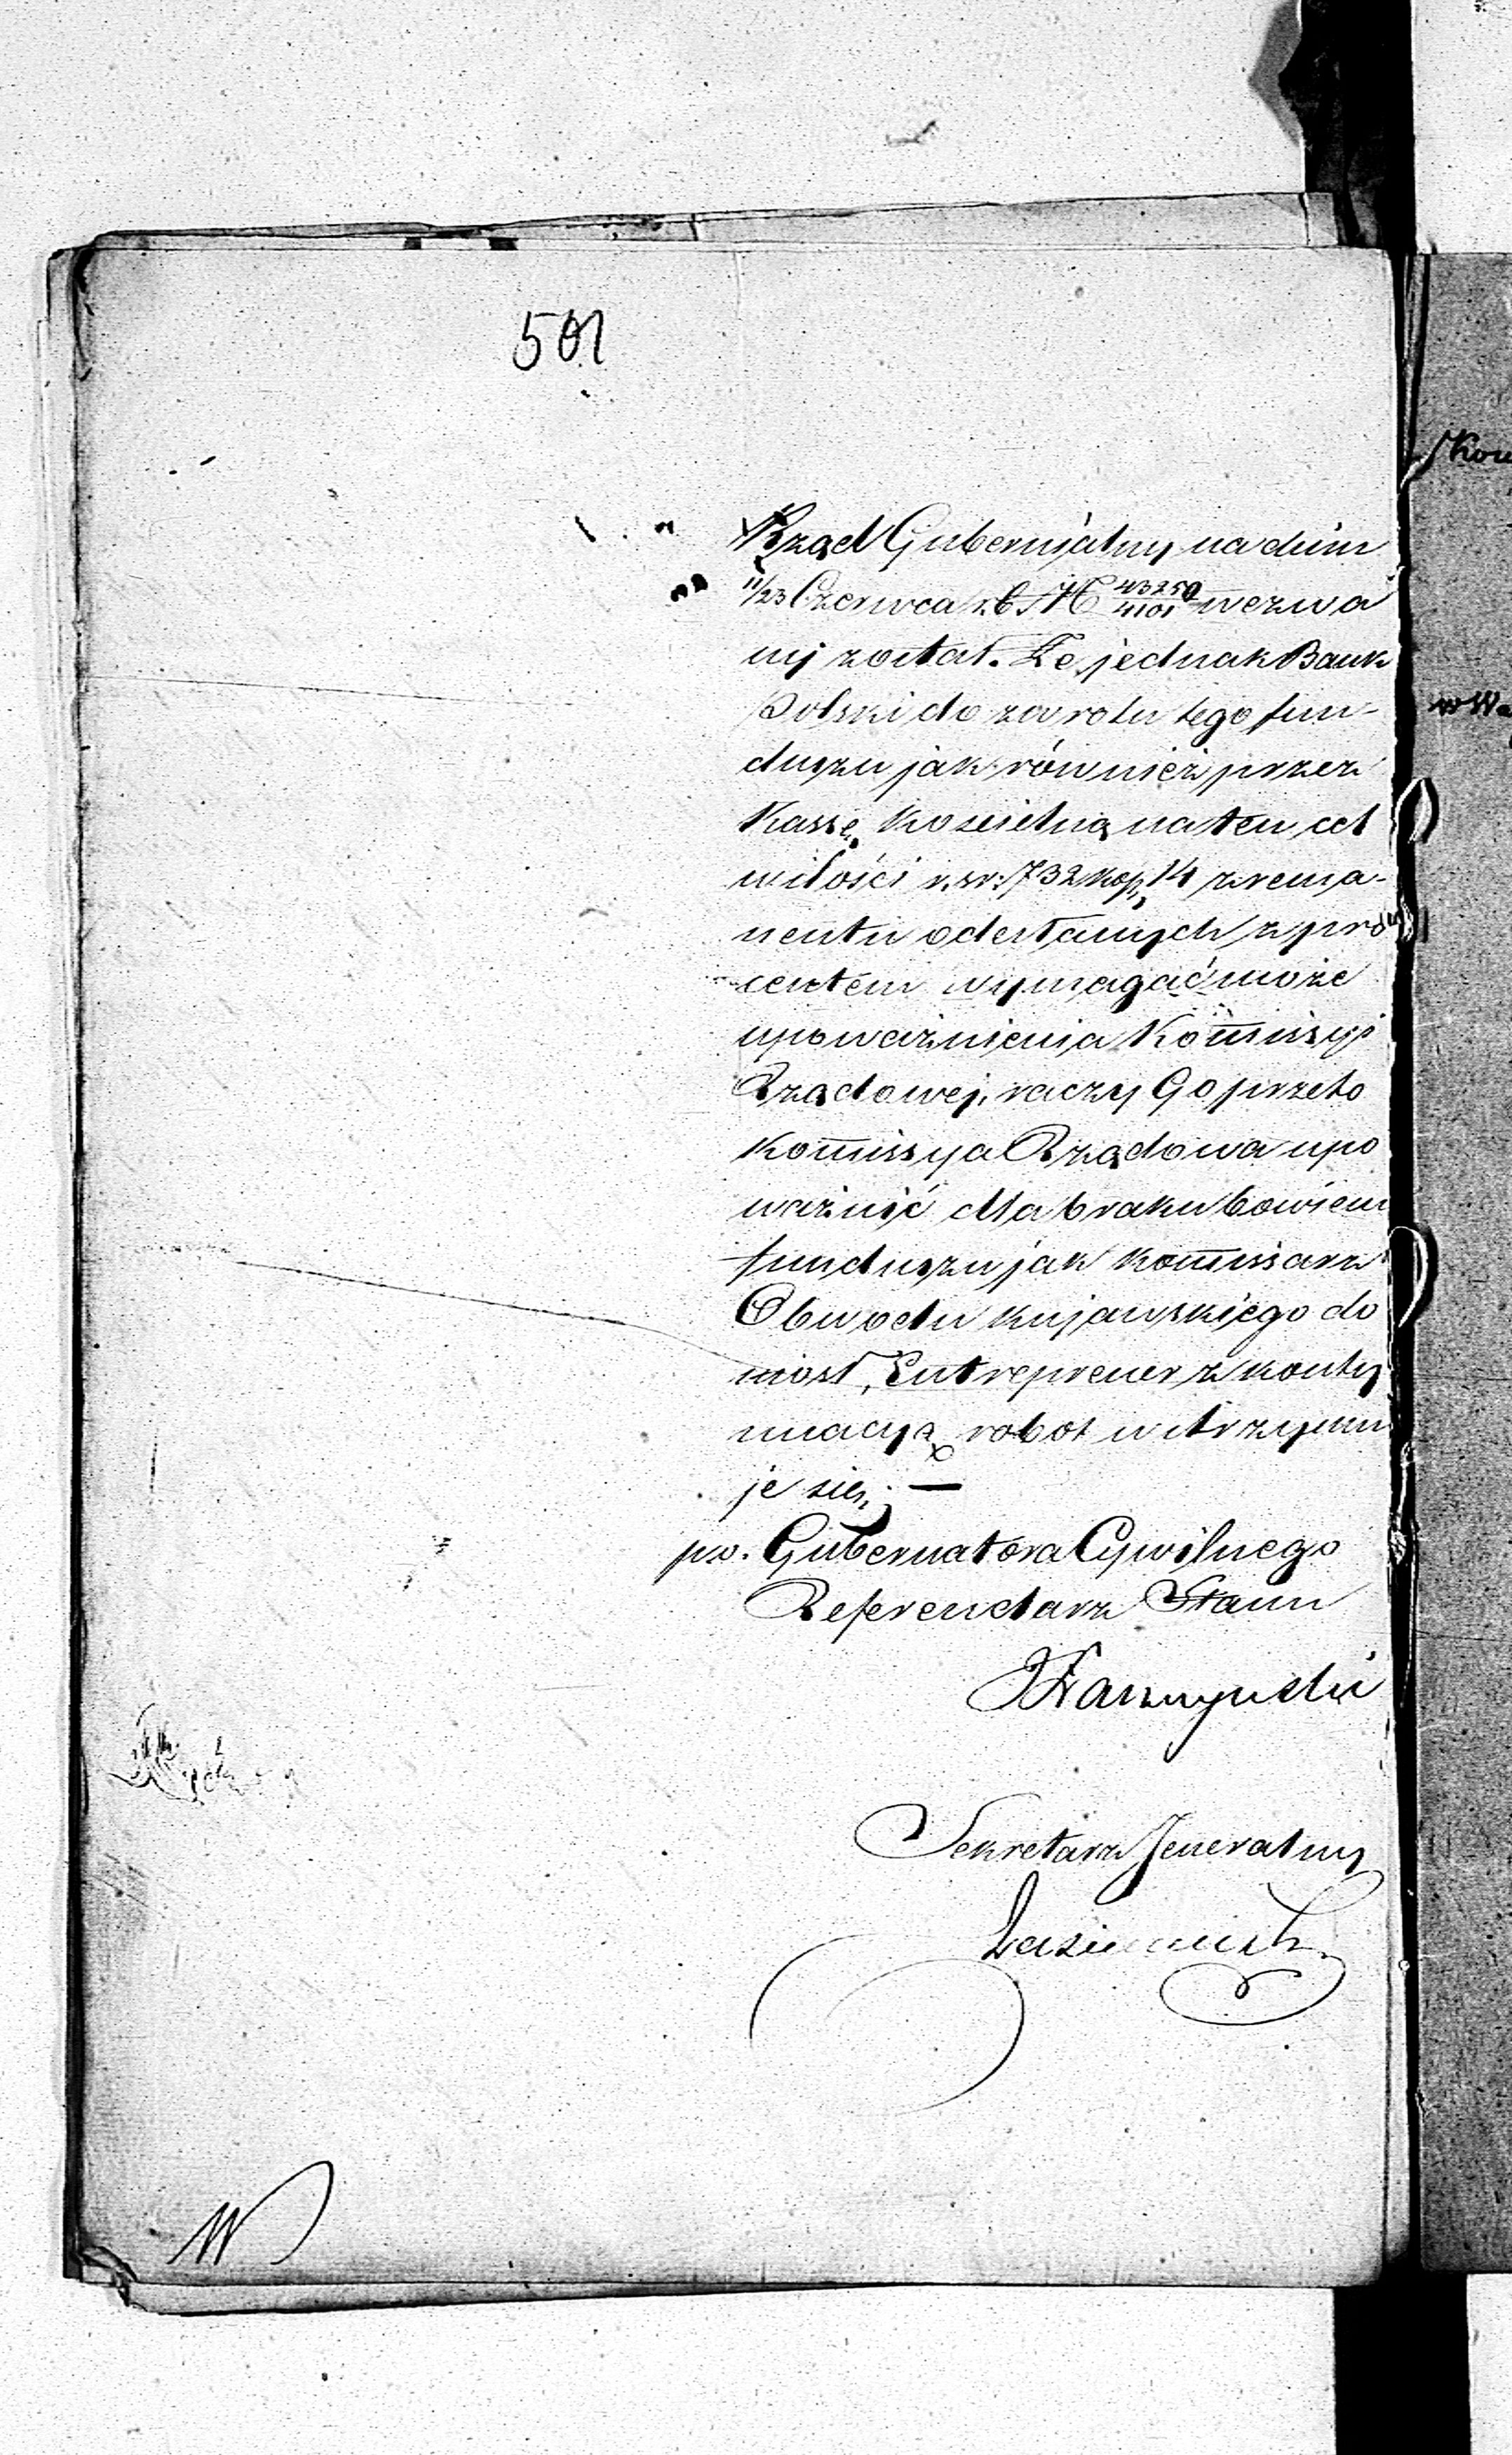 501
Rząd Gubernjalny na dniu
11/23 Czerwca r.b. N 43250/4101 wezwa
ny został. Że jednak Bank
Polski do zwrotu tego fun-
duszu jak również przez
Kassę Kościelną na ten cel
w ilości r.sr: 732 kop. 14 z rema-
nentu odesłanych z pro
centem wymagać może
upoważnienia Kom̄issyi
Rządowej, raczy Go przeto
Kom̄issya Rządowa upo
ważnić dla braku bowiem
funduszu jak Kom̄issarz
Obwodu Kujawskiego do
niosł, Entreprener z konty
nuacyą robot wstrzymu
je się. —
po. Gubernatora Cywilnego
Referendarz Stanu
Sekretarz Jeneralny
Kow
w Wa